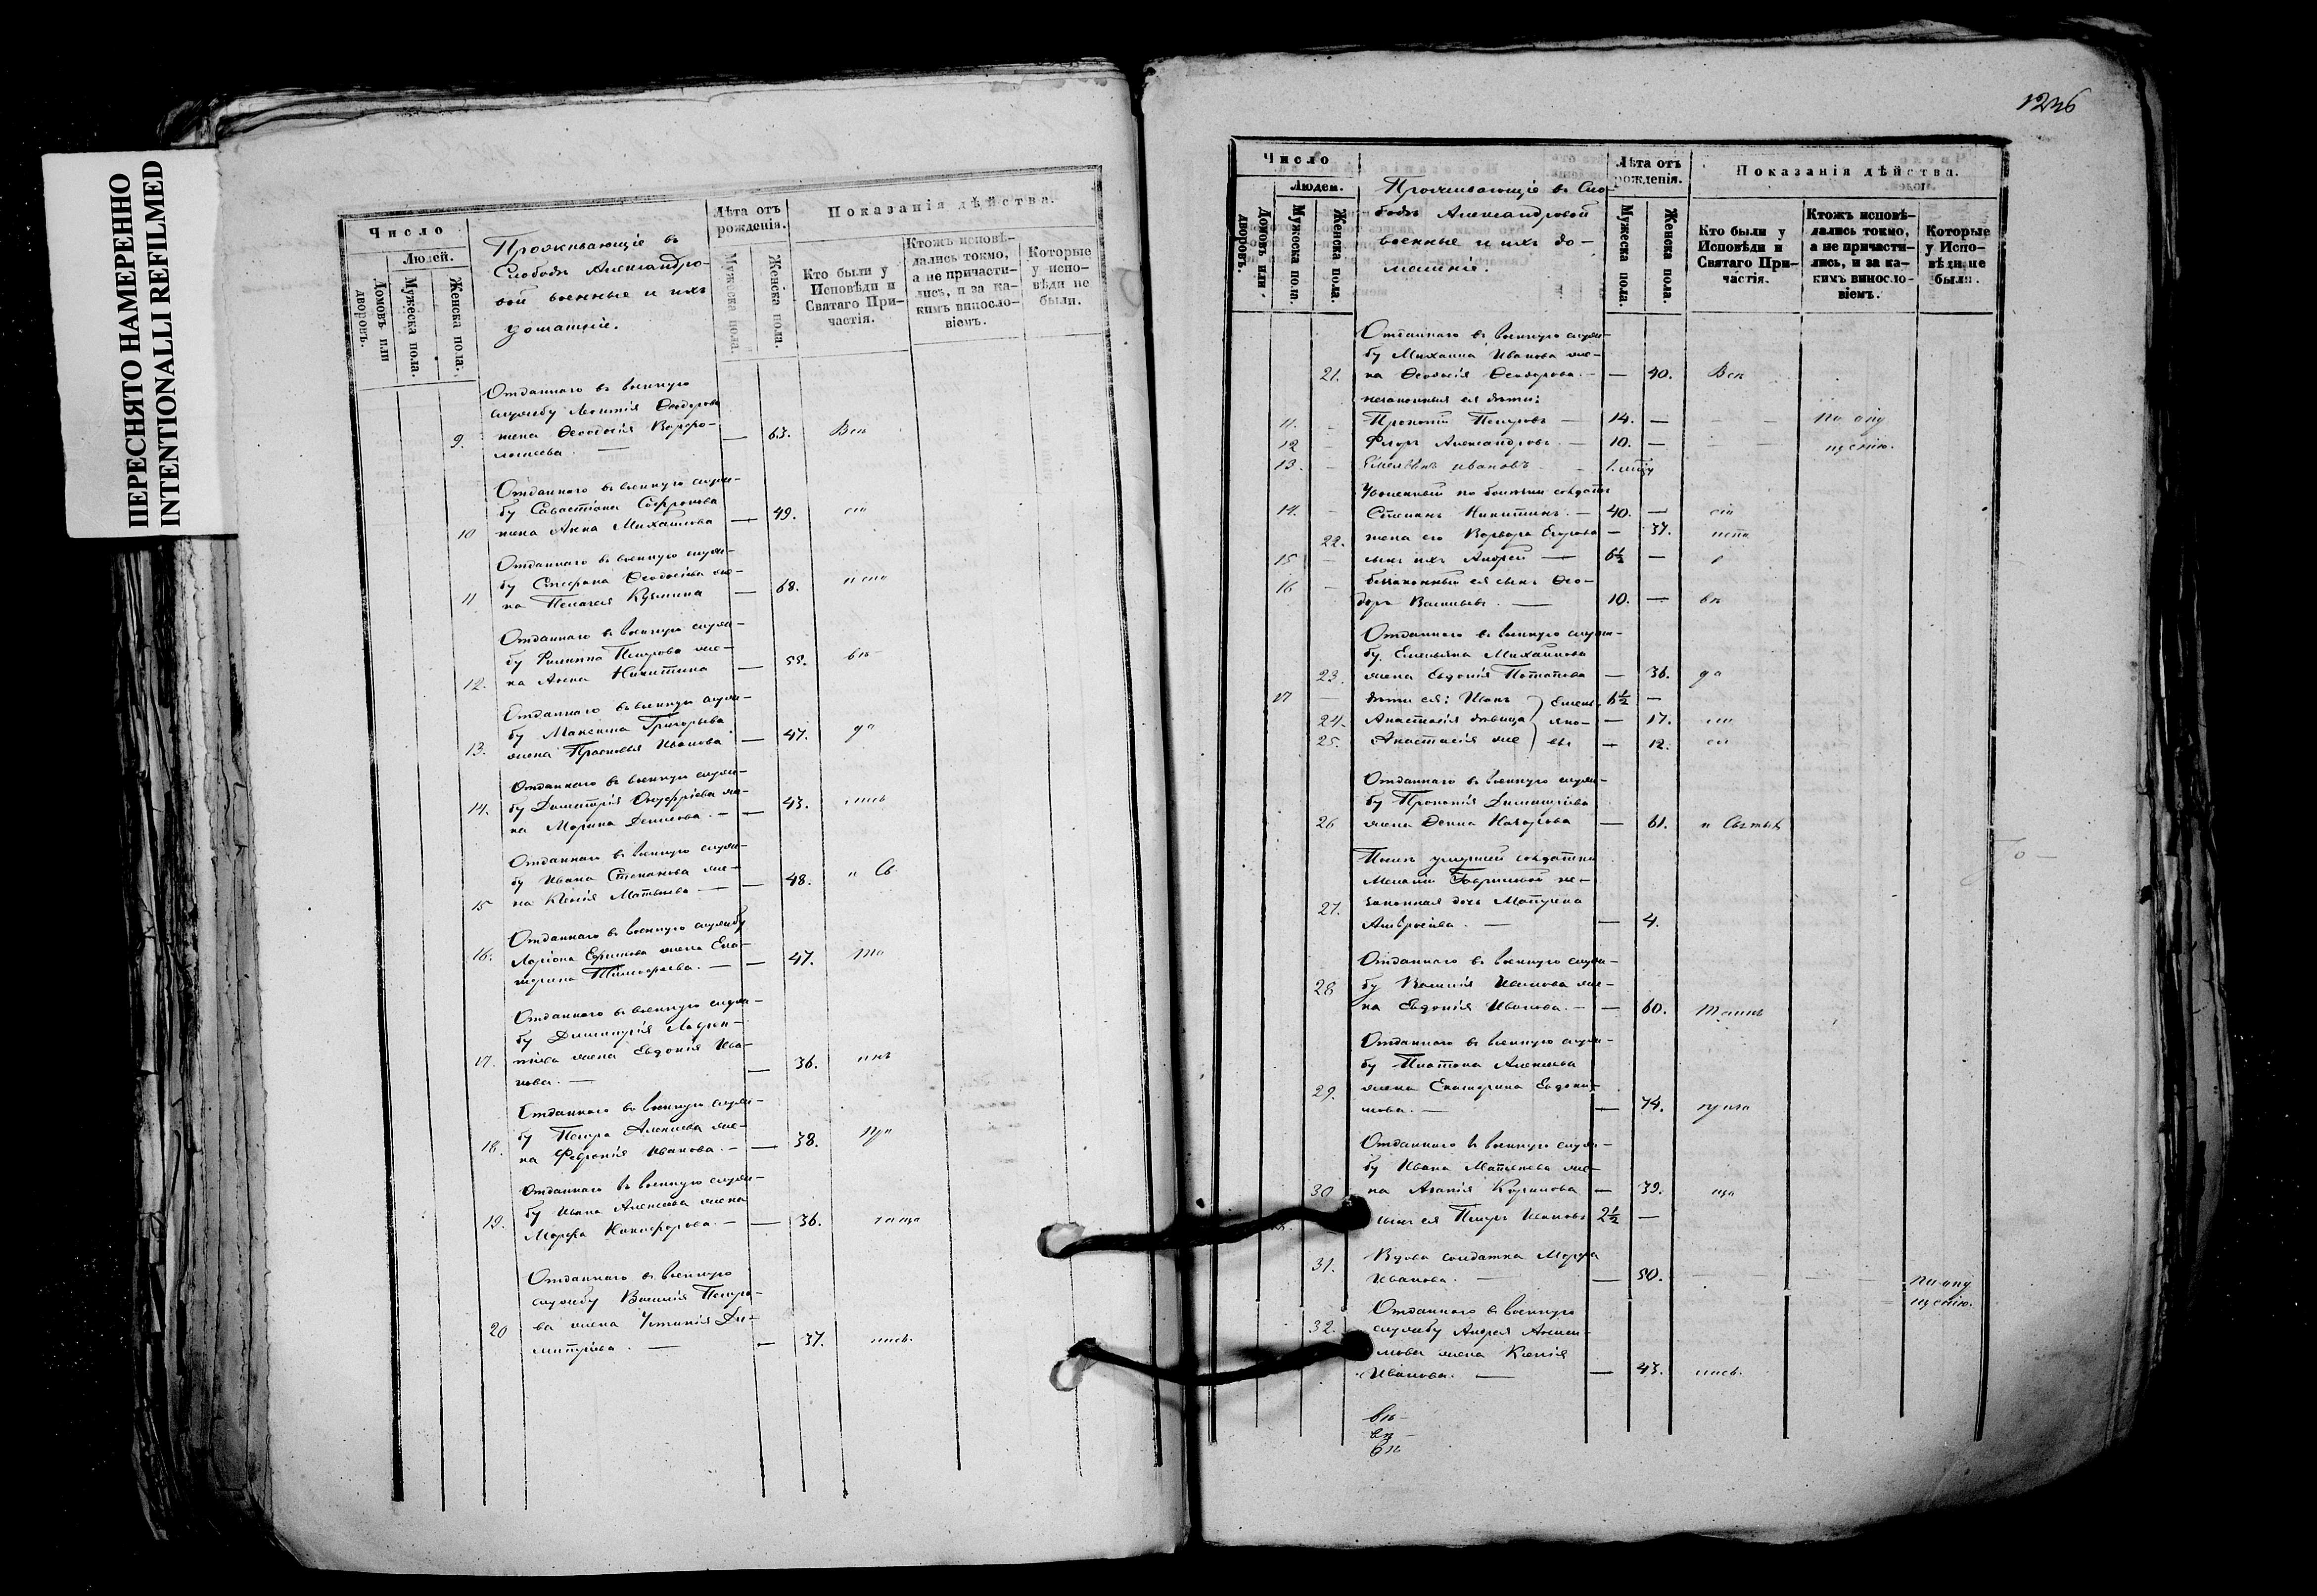 ПЕРЕСНЯТО НАМЕРЕННО
INTENTIONALLI REFILMED
Число
Людей.
Домовъ или дворовъ.
Мужеска пола.
Женска пола.
Проживающіе въ
Слободѣ Александро-
вой военные и ихъ
домашніе.
Лѣта отъ рожденія.
Мужеска пола.
Женска пола.
Показанія дѣйства.
Кто были у Исповѣди и Святаго При-частія.
Ктожъ исповѣ-дались токмо, а не причасти-лись, и за ка-кимъ виносло-віемъ.
Которые у испо-вѣди не были.
Отданнаго въ военную
службу Леонтія Ѳеодорова
9. жена Ѳеодосія Варфо-
ломеева. — — 63. Всѣ
Отданнаго въ военную служ-
бу Савастіана Софронова
10 жена Анна Михайлова — 49. сіи
Отданнаго въ военную служ-
бу Стефана Ѳеодосіева же-
11 на Пелагея Кузмина — 68. испо
Отданнаго въ военную служ-
бу Филиппа Петрова же-
12. на Анна Никитина — 55. вѣ-
Отданнаго въ военную служ-
бу Максима Григорьева
13. жена Прасковья Иванова — 47. да
Отданнаго въ военную служ-
14. бу Димитрія Онуфріева же-
на Марина Денисова. — — 43. лись
Отданнаго въ военную служ-
бу Ивана Степанова же-
15 на Ксенія Матвѣева — — 48. и Св.
Отданнаго въ военную службу
16. Ларіона Ефимова жена Ека-
терина Тимофеева. — — 47.
Отданнаго въ военную служ-
бу Димитрія Лаврен-
17. тіева жена Евдокія Ива-
нова. — — 36.
Отданнаго въ военную служ-
бу Петра Алексѣева же-
18. на Февронія Иванова. — — 38. при
Отданнаго въ военную служ-
бу Ивана Алексѣева жена
19. Марфа Никифорова. — — 36. чаща
Отданнаго въ военную
службу Василія Петро-
20 ва жена Устинія Ди-
митріева. — — 37. лись.
Число
Людей.
Домовъ или дворовъ.
Мужеска пола.
Женска пола.
Проживающіе въ Сло-
бодѣ Александровой
военные и ихъ до-
машніе.
Лѣта отъ рожденія.
Мужеска пола.
Женска пола.
Показанія дѣйства.
Кто были у Исповѣди и Святаго При-частія.
Ктожъ исповѣ-дались токмо, а не причасти-лись, и за ка-кимъ виносло-віемъ.
Которые у Испо-вѣди не были.
Отданнаго въ военную служ-
бу Михаила Иванова же-
21. на Ѳеодосія Ѳеодорова. — — 40. Всѣ
незаконныя ея дѣти:
11. Прокопій Петровъ — 14. — По опу
12 Флоръ Александровъ — 10. — щенію.
13. Емельянъ Ивановъ
Уволенный по болѣзни солдатъ
14. Степанъ Никитинъ. — 40. — сіи
22. жена его Варвара Егорова — 37. испо
15 сынъ ихъ Андрей — 6½ —
16 беззаконный ея сынъ Ѳео-
доръ Васильевъ. — 10. — вѣ
Отданнаго въ военную служ-
бу Емельяна Михайлова
23. жена Евдокія Потапова — 36. да
17 дѣти ея: Иванъ 6½ —
24. Анастасія дѣвица — 17. ли
25. Анастасія же — 12. сь
Емель-
яно-
вы
Отданнаго въ военную служ-
бу Прокопія Димитріева
26 жена Ѳекла Назарова — 61. и Святыхъ
Послѣ умершей солдатки
Меланіи Гавриловой не-
27. законная дочь Матрена
Амвросіева. — — 4.
Отданнаго въ военную служ-
28 бу Василія Иванова же-
на Евдокія Иванова. — — 60. Таинъ
Отданнаго въ военную служ-
бу Платона Алексѣева
29. жена Екатерина Евдоки-
мова. — — 74. прича
Отданнаго въ военную служ-
бу Ивана Матвѣева же-
30 на Агапія Карпова — 39. ща
сынъ ея Петръ Ивановъ 2½ —
31. Вдова солдатка Марфа
Иванова. — — 50. По опу
щенію.
Отданнаго въ военную
32. службу Андрея
жена Ксенія
Иванова. — — 43. лись.